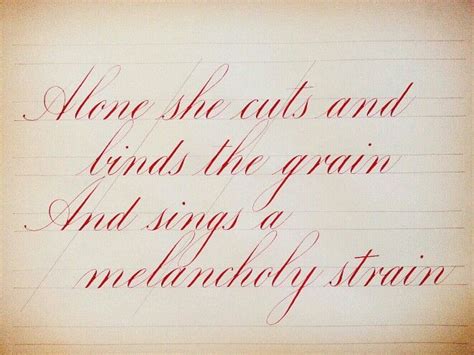 Alone she cuts and
binds the grain
And sings a
melancholy strain